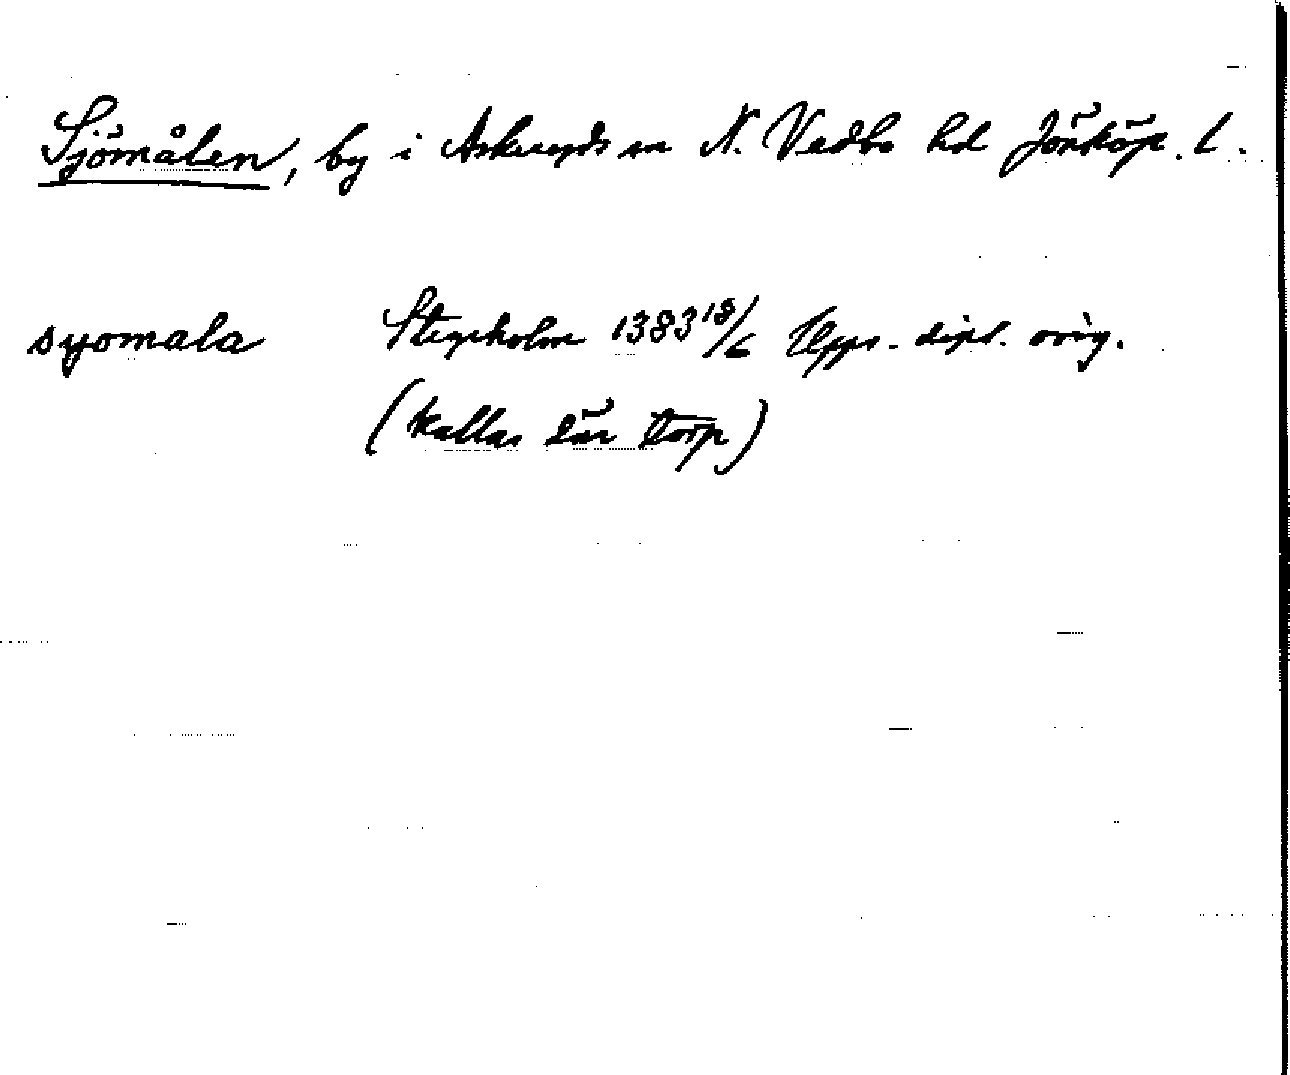 Sjömålen, by i Askeryds sn N. Vedbo hd Jönköp. l.
syomala Stegeholm 1383 18/6 Upps. dipl. orig.
(kallas där torp)